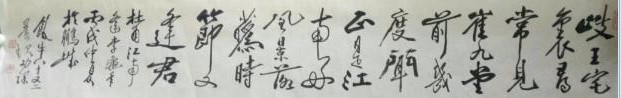 岐王宅
裏尋
常見
崔九堂
前幾
度聞
正是江
南好
風景落
花時
節又
逢君
杜甫江南
逢李龜年
丙戌仲夏
於鵬城